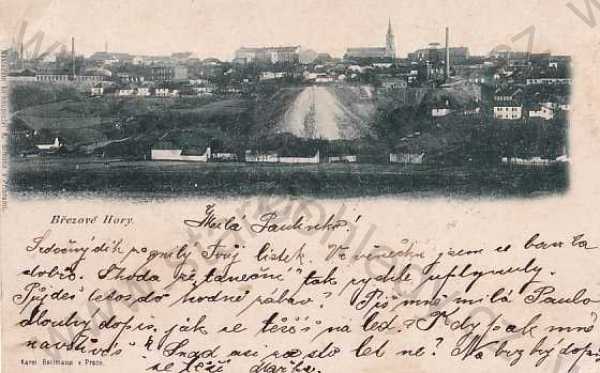 Březové Hory.
Milá Paulinko!
Srdečný dík za milý Tvůj lístek. Ve věnečku jsem se bavila
dobře. Škoda že taneční tak rychle uplynuly.
Půjdeš letos do hodně zábav? Piš mně milá Paulo
dlouhý dopis, jak se těšíš na led? Kdy pak mně
navštívíš? Snad asi za sto let ne? Na brzký dopis
se těší Mařka.
Karel Bellmann v Praze.